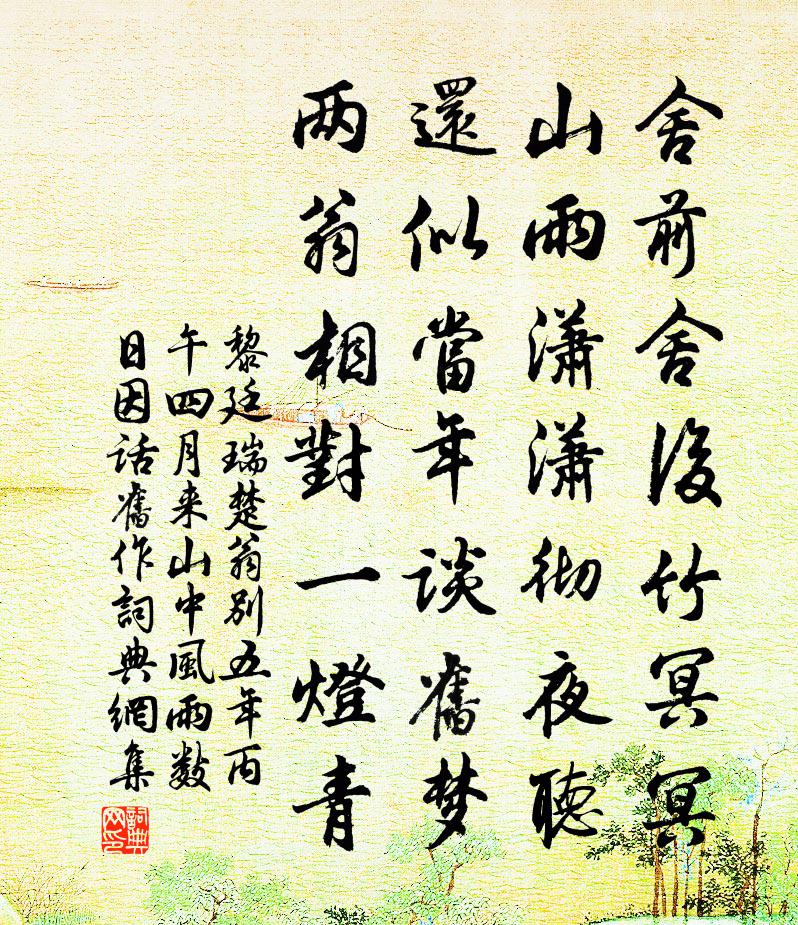 舍前舍後竹冥冥
山雨潇潇彻夜聽
還似當年谈舊梦
两翁相對一燈青
黎廷瑞楚翁别五年丙
午四月来山中風雨数
日因话舊作詞典網集
詞典网印